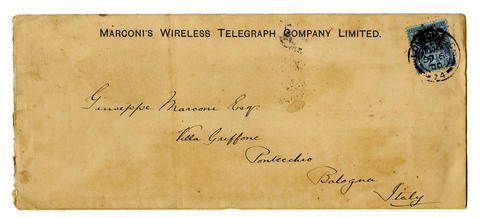 MARCONI'S WIRELESS TELEGRAPH COMPANY LIMITED.
Giuseppe Marconi Esq.
Villa Griffone
Pontecchio
Bologna
Italy